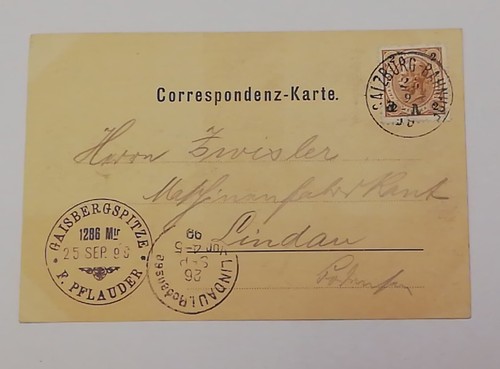 Correspondenz-Karte.
SALZBURG BAHNHOF
Herrn Zwisler
Maschinenfabrikant
Lindau
Bodensee
GAISBERGSPITZE
1286 Mtr
25 SEP. 98
F. PFLAUDER
LINDAU i. Bodensee
26
SEP
Vor. 4-5